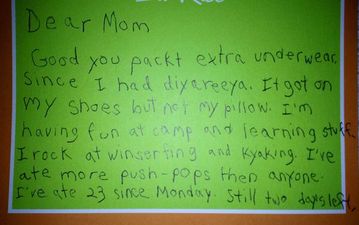 Dear Mom
Good you packt extra underwear
since I had diyareeya. It got on
my shoes but not my pillow. I'm
having fun at camp and learning stuff.
I rock at winserfing and Kyaking. I've
ate more push-pops then anyone.
I've ate 23 since Monday. Still two days left.